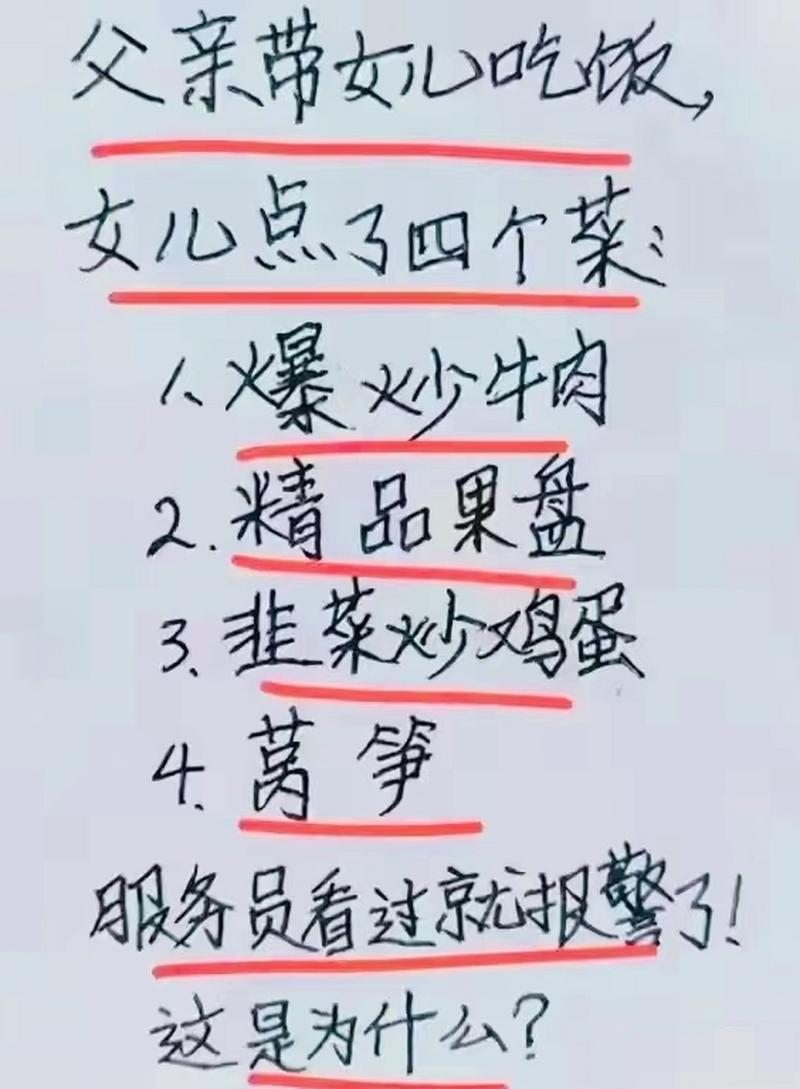 父亲带女儿吃饭,
女儿点了四个菜:
1、爆炒牛肉
2.精品果盘
3.韭菜炒鸡蛋
4.莴笋
服务员看过就报警了!
这是为什么?